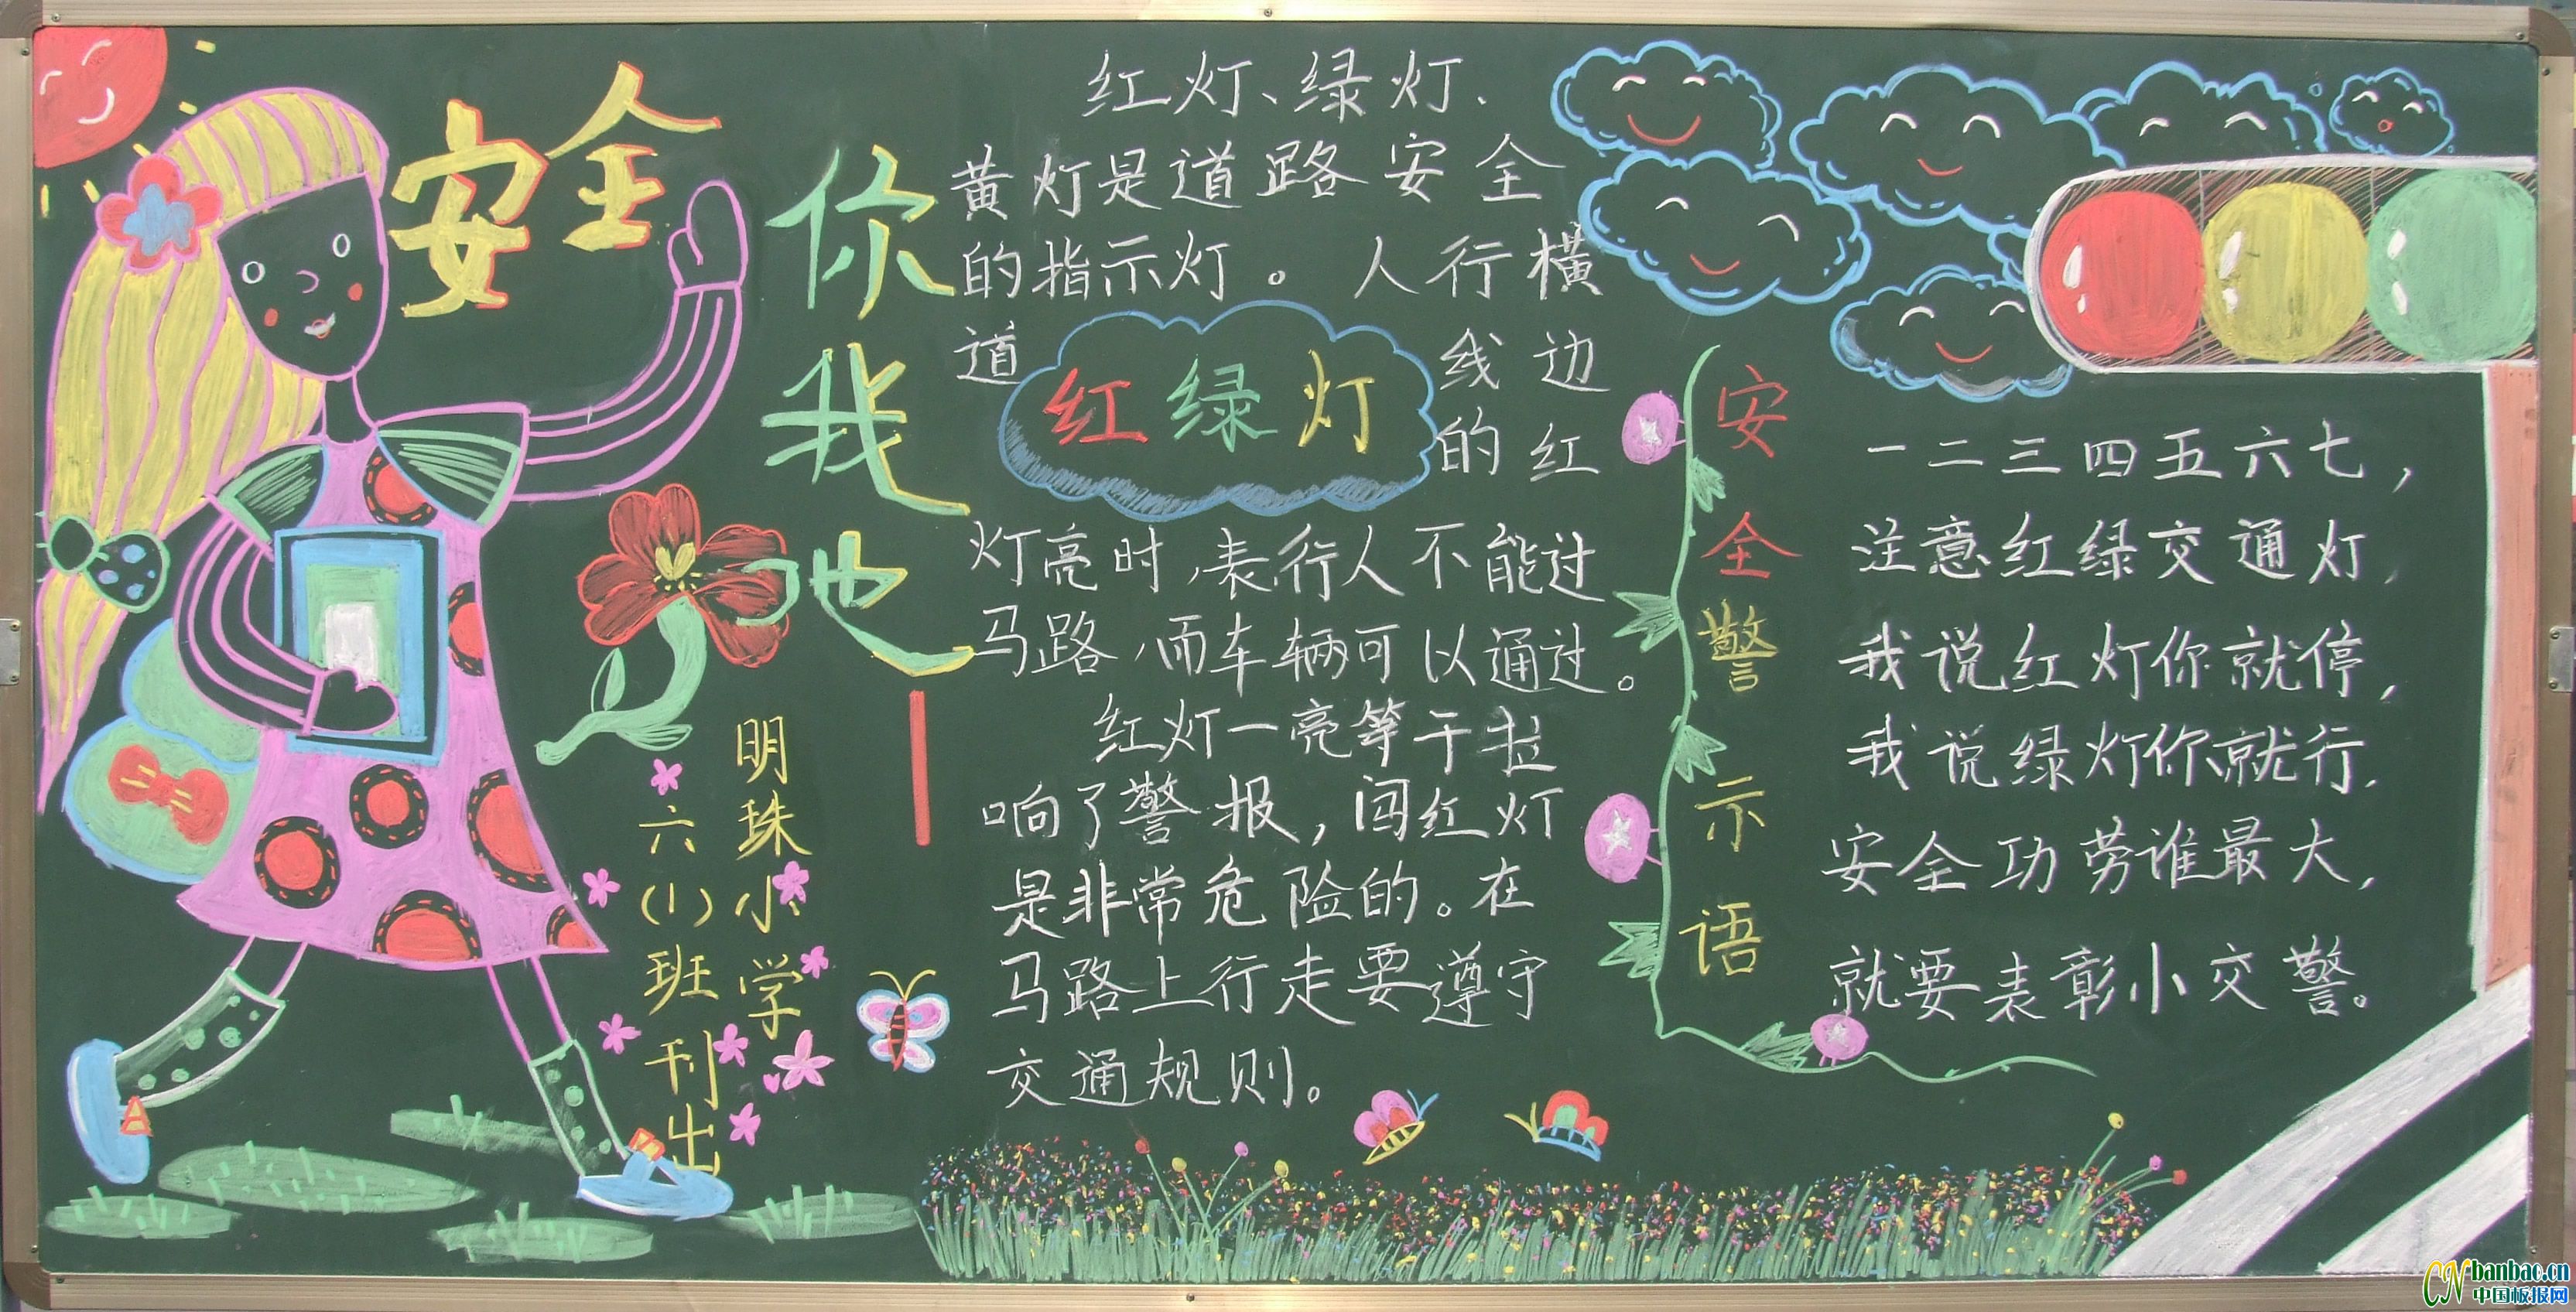 安全
你我他
明珠小学
六(1)班刊出
红灯、绿灯、
黄灯是道路安全
的指示灯。人行横
道线边
的红
红绿灯
灯亮时,表行人不能过
马路,而车辆可以通过。
红灯一亮等于拉
响了警报,闯红灯
是非常危险的。在
马路上行走要遵守
交通规则。
安全警示语
一二三四五六七,
注意红绿交通灯,
我说红灯你就停,
我说绿灯你就行.
安全功劳谁最大,
就要表彰小交警。
CN banbao.cn
中国板报网